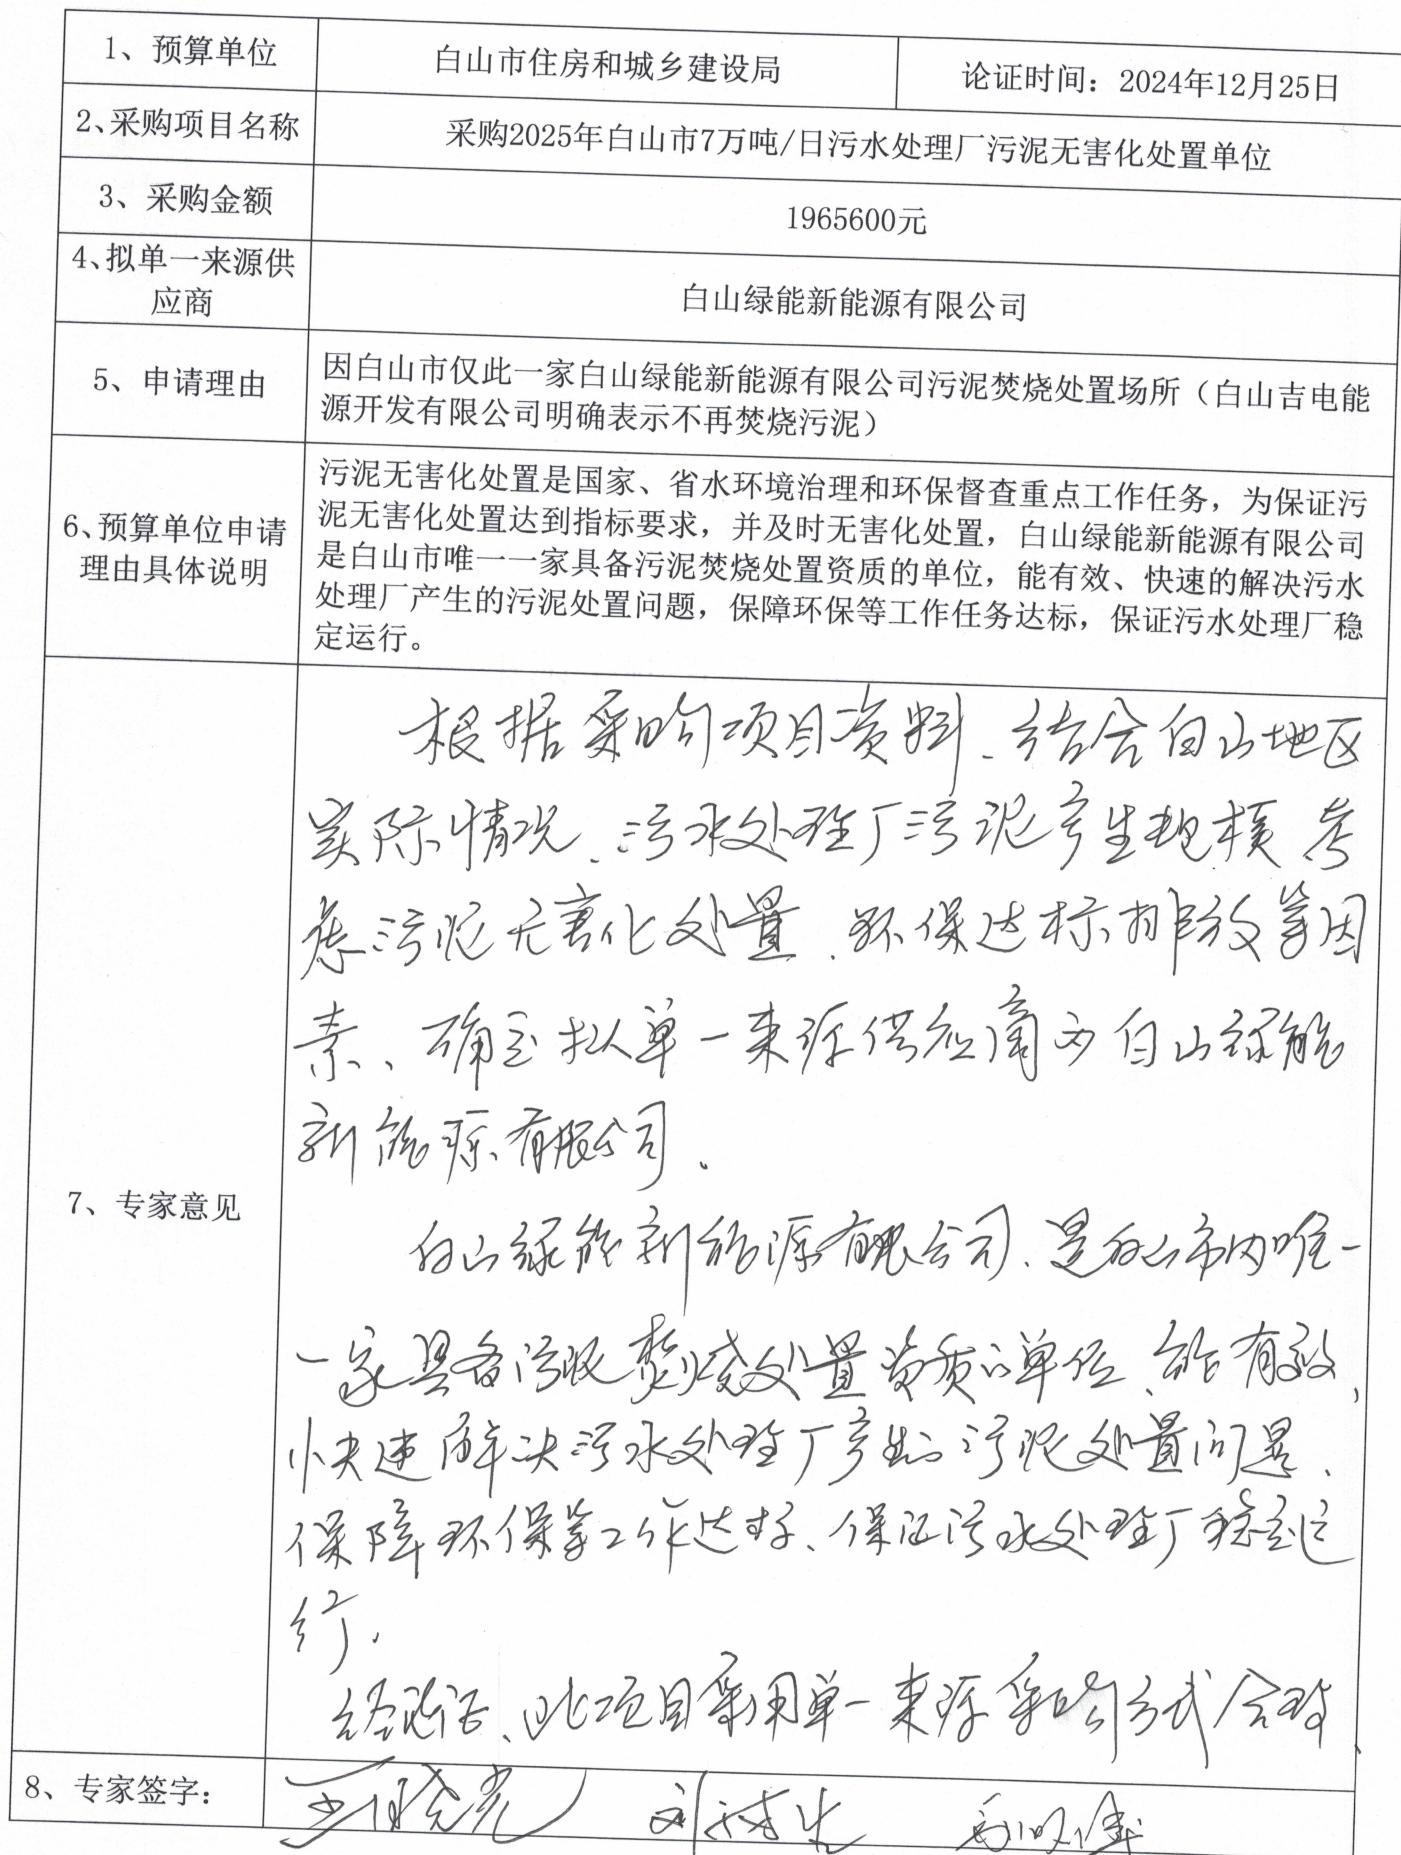 1、预算单位 白山市住房和城乡建设局 论证时间：2024年12月25日
2、采购项目名称 采购2025年白山市7万吨/日污水处理厂污泥无害化处置单位
3、采购金额 1965600元
4、拟单一来源供
应商
白山绿能新能源有限公司
5、申请理由
因白山市仅此一家白山绿能新能源有限公司污泥焚烧处置场所（白山吉电能
源开发有限公司明确表示不再焚烧污泥）
6、预算单位申请
理由具体说明
污泥无害化处置是国家、省水环境治理和环保督查重点工作任务，为保证污
泥无害化处置达到指标要求，并及时无害化处置，白山绿能新能源有限公司
是白山市唯一一家具备污泥焚烧处置资质的单位，能有效、快速的解决污水
处理厂产生的污泥处置问题，保障环保等工作任务达标，保证污水处理厂稳
定运行。
7、专家意见
根据采购项目资料、结合白山地区
实际情况、污水处理厂污泥产生规模考
虑污泥无害化处置、环保达标排放等因
素、确定拟单一来源供应商为白山绿能
新能源有限公司.
白山绿能新能源有限公司、是白山市内唯一
一家具备污泥焚烧处置资质的单位、能有效、
快速解决污水处理厂产生的污泥处置问题、
保障环保等工作达标、保证污水处理厂稳定运
行.
经论证、此项目采用单一来源采购方式合理、
8、专家签字：